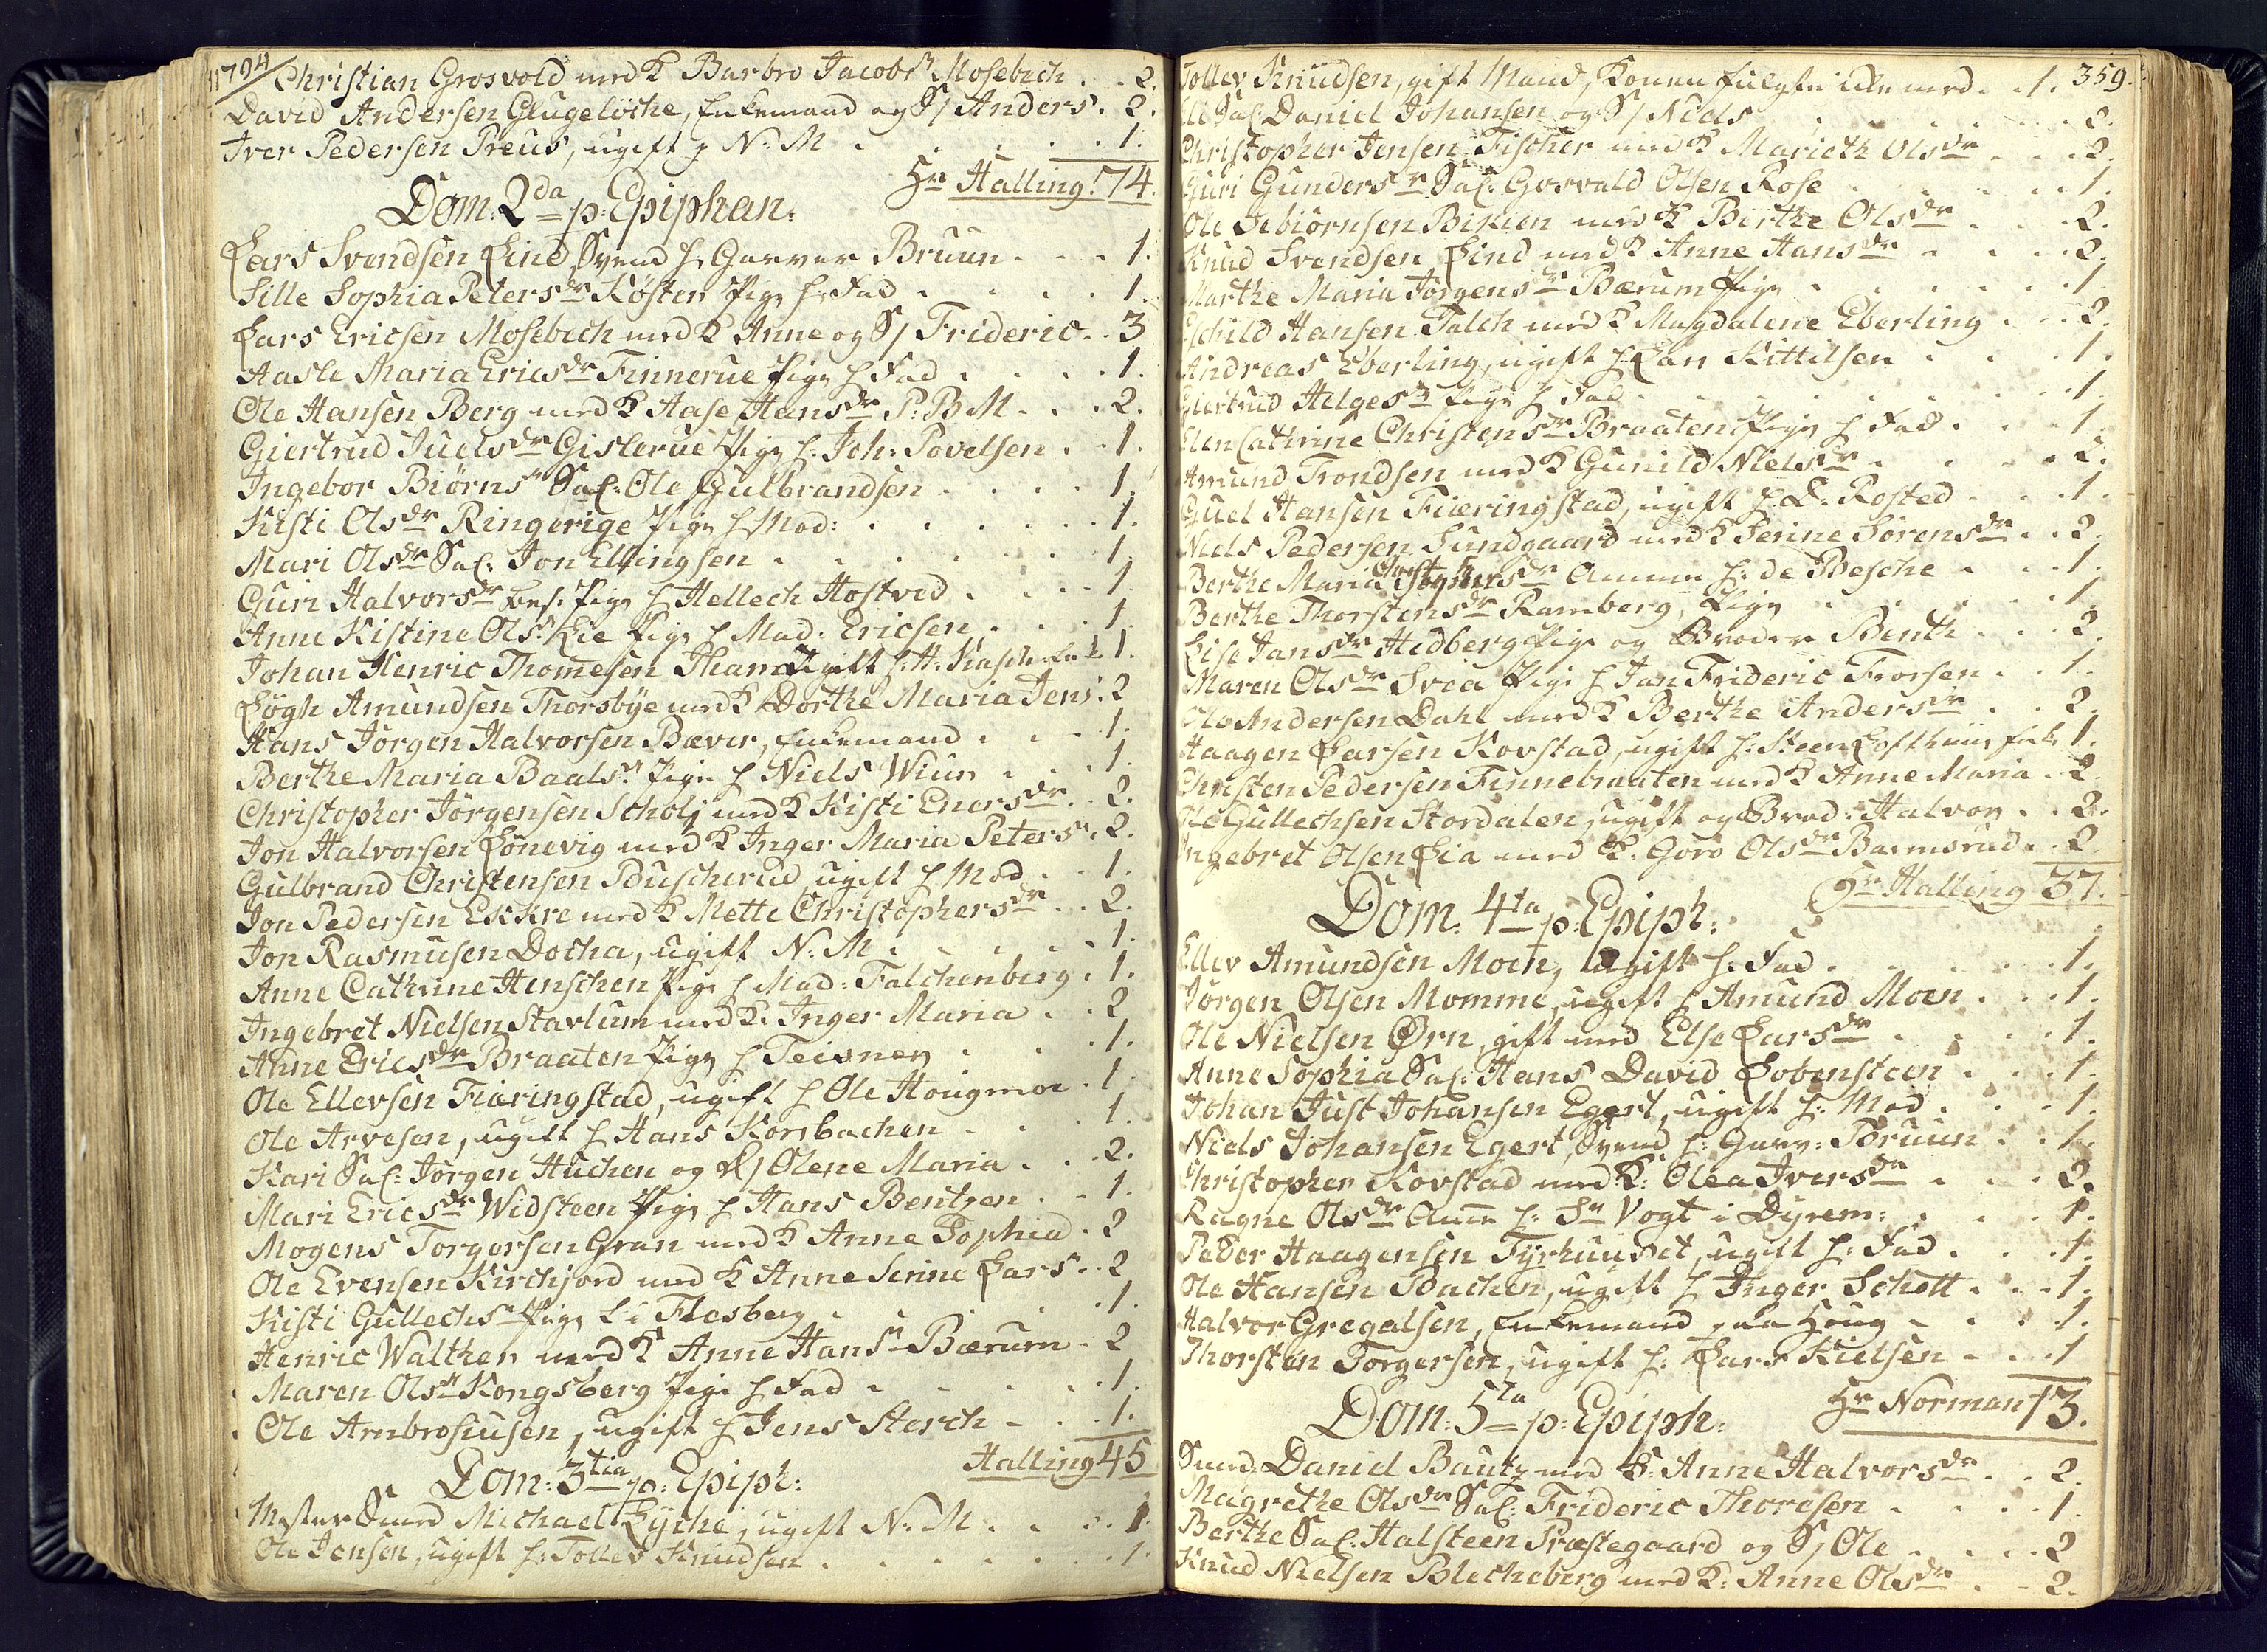 1794
Christian Grosvold med K Barbro Jacobsr Mosebech . . 2.
David Andersen Glugeløche, Enkemand og S/ Anders . 2.
Iver Pedersen Preus, ugift p N. M . . . 1.
Hr Halling. 74.
Dom. 2da p. Epiphan:
Lars Svendsen Lind, Svend h Garver Bruun . . . 1.
Sille Sophia Petersdr Köster Pige h Fad . . . 1.
Lars Ericsen Mosebech med K Anne og S/ Frideric . . 3
Aasle Maria Ericsdr Finnerue Pige h Fad . . . 1.
Ole Hansen Berg med K Aase Hansdr P: B M . . . 2.
Giertrud Juelsdr Gislerue Pige h: Joh: Povelsen . . 1.
Ingebor Biørnsr Sal: Ole Gulbrandsen . . . 1.
Kisti Olsdr Ringerige Pige h Mod: . . . 1.
Mari Olsdr Sal: Jon Ellingsen . . . 1
Guri Halvorsdr bes: Pige h Hellech Hostved . . . 1
Anne Kistine Olsr Lie Pige h Mad. Ericsen . . . 1
Johan Henric Thomesen Tham Ugift h: H: Kasch 1.
Løgh Amundsen Thorsbye med K Dorthe Maria Jens: 2
Hans Jørgen Halvorsen Bæver, Enkemand . . . 1.
Berthe Maria Baalsr Pige h Niels Wiur . . . 1.
Christopher Jørgensen Scholj med K Kisti Enersdr . . 2.
Jon Halvorsen Lønevig med K Inger Maria Petersr . 2.
Gulbrand Christensen Buscherud, ugift h Mod . . 1.
Jon Pedersen Ekkre med K Mette Christophersdr . . 2.
Jon Rasmusen Docha, ugift N. M . . . 1.
Anne Cathrine Henschen Pige h Mad: Falchenberg . 1.
Ingebret Nielsen Stavlum med K. Inger Maria . . 2
Anne Ericsdr Braaten Pige h Teisner . . . 1.
Ole Ellevsen Fiæringstad, ugift h Ole Hougmoe . 1.
Ole Arvesen, ugift h Hans Korsbachen . . . 1.
Kari Sal: Jørgen Huchen og D/ Olene Maria . . 2.
Mari Ericsdr Widsteen Pige h Hans Bentzen . . 1.
Mogens Torgersen Gran med K Anne Sophia . 2
Ole Evensen Kirchjord med K Anne Serine Larsr . 2
Kisti Gullechsr Pige L i Flesberg . . . 1.
Henric Walther med K Anne Hansr Bærum . 2
Maren Olsr Kongsberg Pige h Fad . . . 1.
Ole Ambrosiusen, ugift h Jens Storch . . . 1.
Halling 45
Dom: 3tia p: Epiph:
Mester Smed Michael Lyche, ugift N. M . . . 1.
Ole Jensen, ugift h: Tollev Knudsen . . . 1.
359.
Tollev Knudsen, gift Mand, Konen fulgte ikke med . . 1.
Sal: Daniel Johansen og S/ Niels . . . 2.
Christopher Jensen Fischer med K Marieth Olsdr . . 2.
Guri Gundersr Sal: Gorvald Olsen Rose . . . 1.
Ole Esbiörnsen Bikien med K Birthe Olsdr . . . 2.
Knud Svendsen Lind med K Anne Hansdr . . . 2.
Marthe Maria Jørgensdr Bærum Pige . . . 1.
Eschild Hansen Falch med K Magdalene Eberling . . 2.
Andreas Eberling, ugift h Lars Kittilsen . . . 1.
Giertrud Helgesr Pige h Fad . . . 1.
Elen Cathrine Christensdr Braaten Pige h Fad . . . 1.
Amund Trondsen med K Gunild Nielsdr . . . 2.
Guel Hansen Fiæringstad, ugift h: D. Rosted . . . 1.
Niels Pedersen Sundgaard med K Serine Sörensdr . . 2.
Berthe Maria Christophersdr Amme h: de Besche . . . 1.
Berthe Thorstensdr Ramberg, Pige . . . 1
Lise Jansdr Hedberg Pige og Broder Benth . . . 2.
Maren Olsdr Svea Pige h Jan Frideric Frorsen . . 1.
Ole Andersen Dahl med K Berthe Andersdr . . 2.
Haagen Larsen Kovstad, ugift h: Steen Lofthuus 1.
Christen Pedersen Finnebraaten med K Anne Maria . 2
Ole Gullechsen Stordalen, ugift og Brod: Halvor . . 2.
Ingebret Olsen Lia med K. Goro Olsdr Barmsrud . . 2
Hr Halling 37.
Dom: 4ta p: Epiph:
Ellev Amundsen Moen, Ugift h. Fad . . . 1.
Jørgen Olsen Momme, ugift h Amund Moen . . . 1.
Ole Nielsen Ørn, gift med Else Larsdr . . . 1.
Anne Sophia Sal: Hans David Lobensteen . . . 1.
Johan Just Johansen Egert, ugift h: Mod . . . 1.
Niels Johansen Egert, Svend h: Garv: Bruun . . 1.
Christopher Kovstad med K: Olea Iversdr . . . 2.
Ragne Olsdr Amme h: Sr Vogt i Dyrem: . . . 1.
Peder Haagensen Fyrhuuset, ugift h: Fad . . . 1.
Ole Hansen Bachen, ugift h Inger Schott . . . 1.
Halvor Gregalsen, Enkemand paa Houg . . . 1.
Thorsten Torgersen, ugift h: Lars Kielsen . . . 1
Hr Norman 13.
Dom: 5ta p: Epiph:
Smed Daniel Bautz med K: Anne Halvorsdr . . 2.
Magrethe Olsdr Sal: Frideric Thoresen . . . 1.
Berthe Sal: Halsteen Præstegaard og S/ Ole . . . 2
Knud Nielsen Blecheberg med K: Anne Olsdr . . 2.